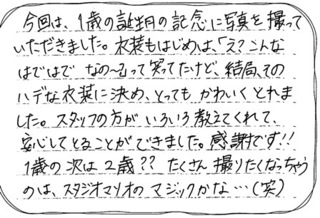 今回は、1歳の誕生日の記念に写真を撮って
いただきました。衣装もはじめは、「え？こんな
はではで なの~」って笑ってたけど、結局、その
ハデな衣装に決め、とっても かわいくとれま
した。スタッフの方が いろいろ教えてくれて、
安心してとることができました。感謝です!!
1歳の次は2歳?? たくさん撮りたくなっちゃう
のは、スタジオマリオの マジックかな…(笑)